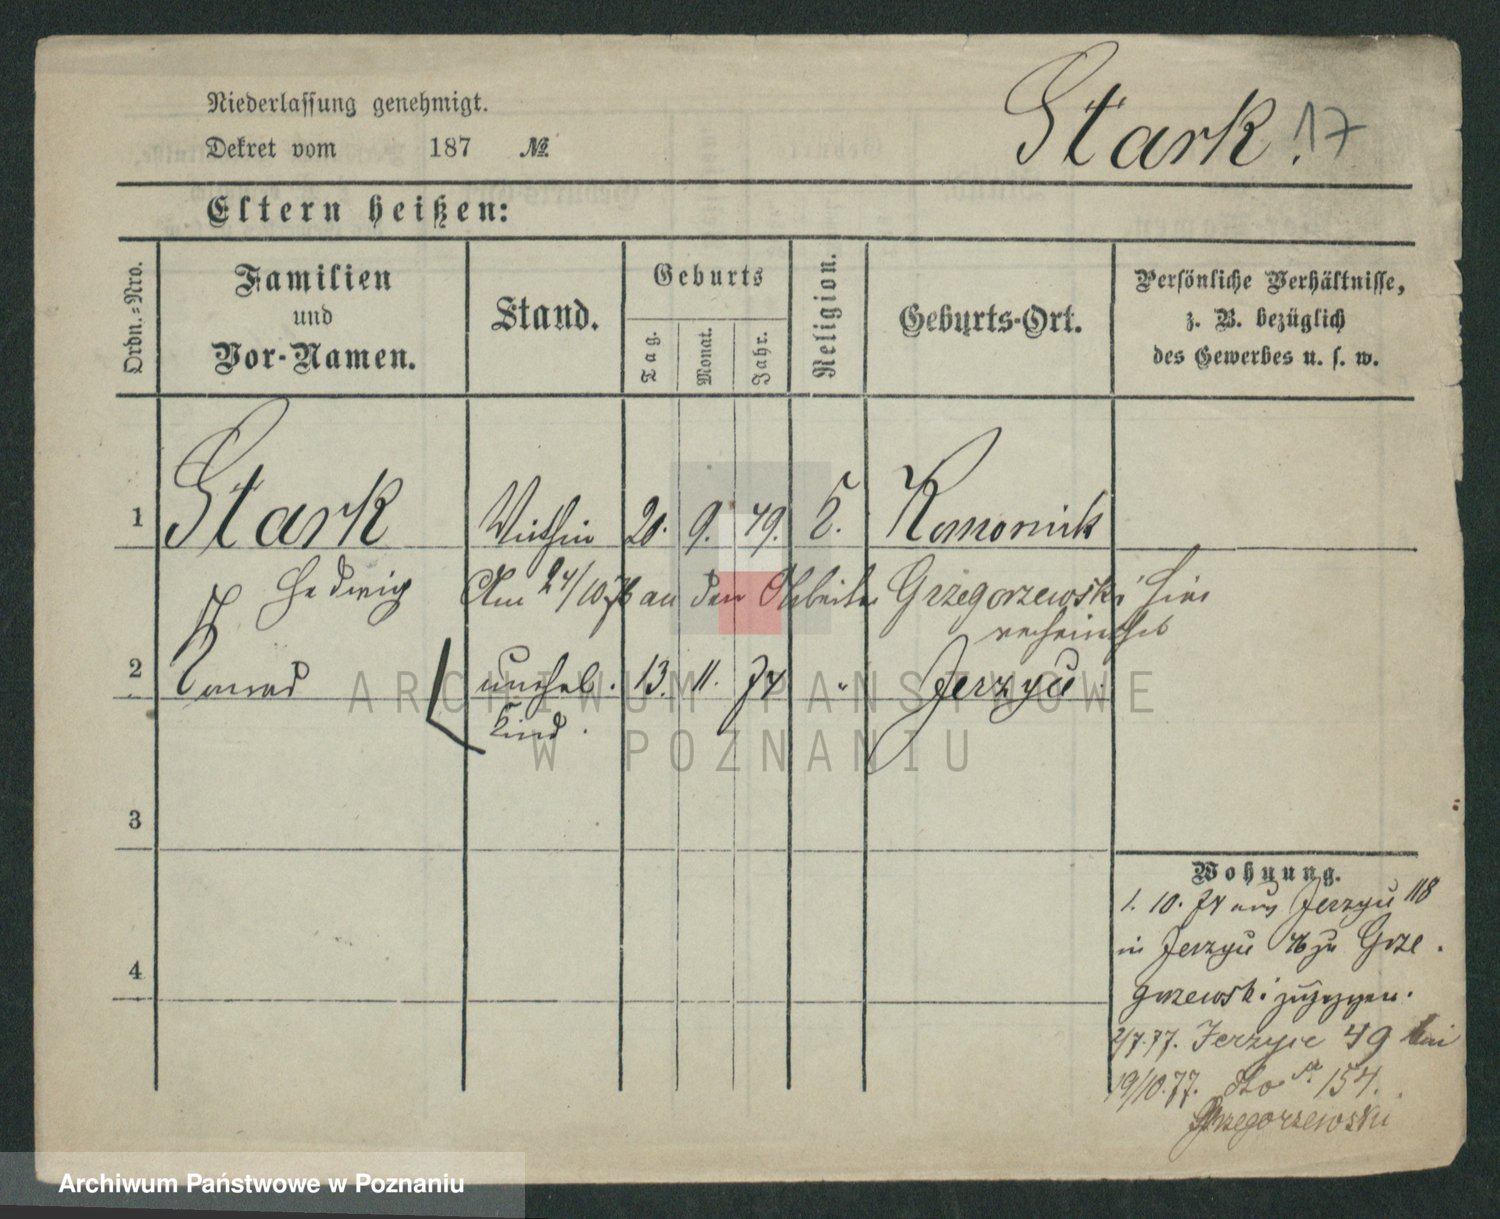 Niederlassung genehmigt.
Dekret vom 187 №
Stark. 17
Eltern heißen:
Ordn.-Nro.
Familien
und
Vor-Namen.
Stand.
Geburts
Tag.
Monat.
Jahr.
Religion.
Geburts-Ort.
Persönliche Verhältnisse,
z. B. bezüglich
des Gewerbes u. s. w.
1 Stark 20. 9. 49. k. Komornik
Hedwig Am 24/10 76 an den Arbeiter Grzegorzewski hier
verheirathet
2 Konrad unehel. 13. 11. 74 " Jerzyce
Kind.
3
4
Wohnung.
1. 10. 74 aus Jerzyce 118
in Jerzyce 46 zu Grze
gorzewski zugezogen.
2/7.77. Jerzyce 49 bei
19/10.77. dto № 154.
Grzegorzewski
ARCHIWUM PAŃSTWOWE
W POZNANIU
Archiwum Państwowe w Poznaniu